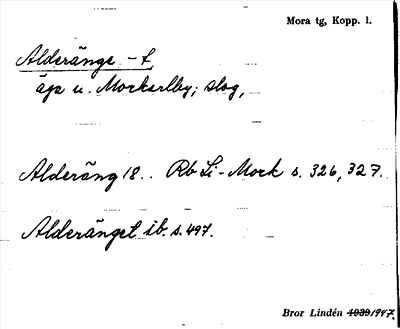 Mora tg, Kopp. l.
Alderänge -t,
äga u. Morkarlby; slog,
Alderäng 18.. Rb Li-Mork s. 326, 327.
Alderänget ib. s. 497.
Bror Lindén 1939 1947.